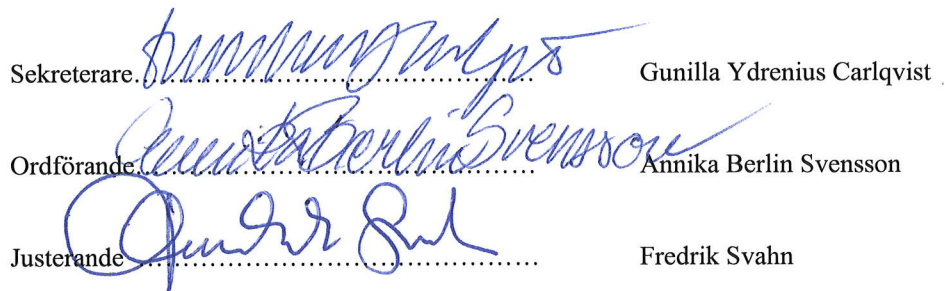 Sekreterare.................................................... Gunilla Ydrenius Carlqvist
Annika Berlin Svensson
Ordförande.................................................... Annika Berlin Svensson
Justerande .................................................... Fredrik Svahn